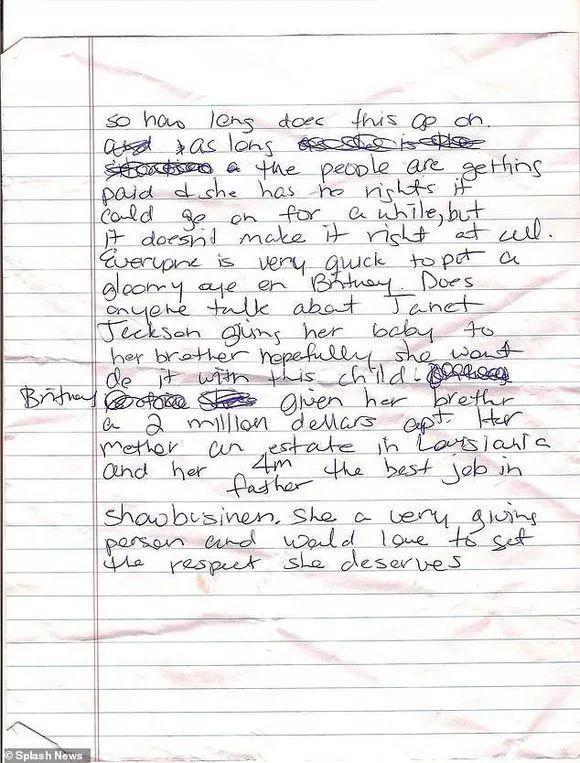 so how long does this go on.
as long
the people are getting
paid & she has no rights it
could go on for a while, but
it doesn't make it right at all.
Everyone is very quick to put a
gloomy aye on Britney. Does
anyone talk about Janet
Jeckson giving her baby to
her brother hopefully she wont
do it with this child.
Britney given her brother
a 2 million dollars apt. Her
mother an estate in Louisiania
and her 4m the best job in
father
showbusinen. She a very giving
person and would love to get
the respect she deserves
© Splash News